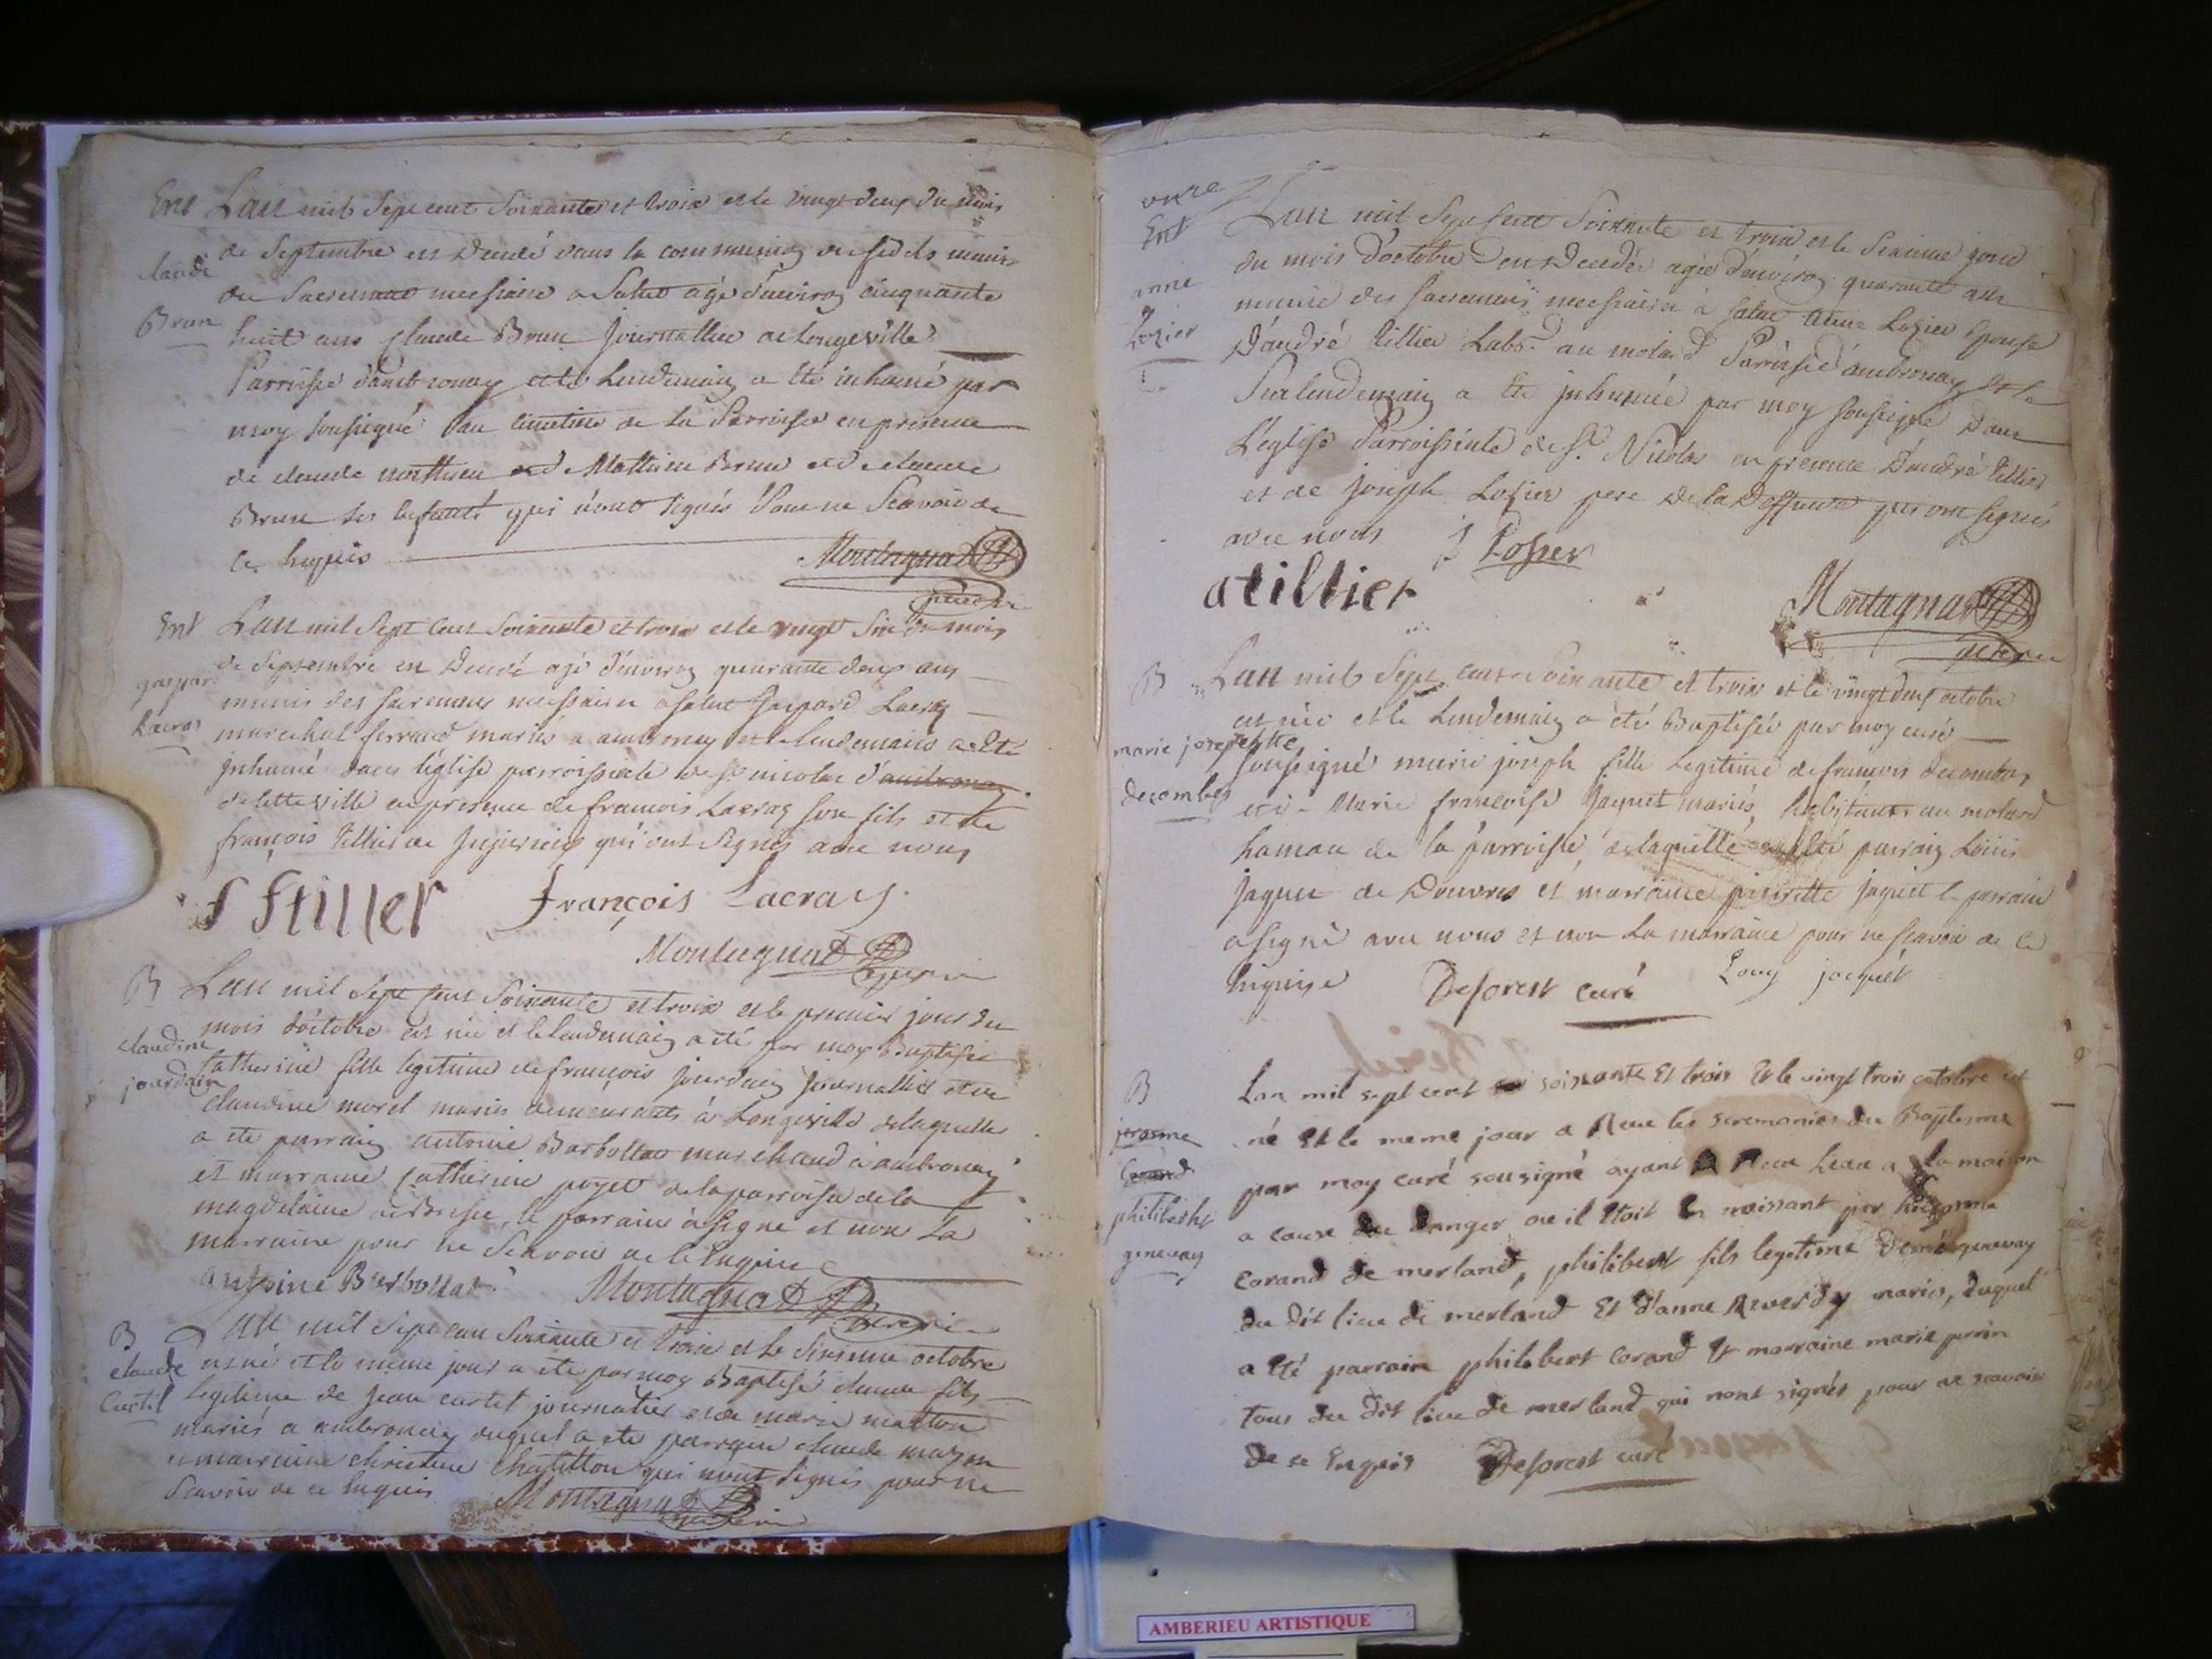 Ent
claude
Brun
Lan mil sept cent soixante et trois et le vingt deux du mois
de septembre est décedé dans la communion des fidels munis
des sacremens necessaire a salut agé d'environ cinquante
huit ans claude Brun journallier de longeville
Parroisse d'ambronay et le lendemain a été inhumé par
moy soussigné au cimetiere de la Parroisse en presence
de claude matthieu et de Matthieu Brun et de claude
Brun ses enfants qui n'ont signés Pour ne Scavoir de
ce huquis
Montagnat
Ent
gaspar
Lacras
Lan mil sept cent soixante et trois et le vingt six du mois
de septembre est Decedé agé d'environ quarante deux ans
munis des sacremens necessaires a salut Gaspard Lacray
marechal ferrand mariés a ambronay et le lendemain a été
inhumé dans l'église parroissiale de st nicolas d'ambronay
de cette ville en presence de francois Lacray son fils et de
françois tillier de qui ont signés avec nous
f ftiller
françois Lacray
Montagnat
B
claudine
jourdain
Lan mil sept cent soixante et trois et le premier jour du
mois d'octobre est née et le lendemain a été par moy Baptisée
Catherine fille legitime de françois jourdain journallier et de
claudine morel mariés demeurants à Longeville de laquelle
a ete parrain antoine Barbollat marchand à ambronay
et marraine catherine poyet de la parroisse de la
magdelaine de le parrain à signé et non la
marraine pour ne Scavoir de ce enquise
antoine Barbollat
Montagnat
B
claude
Curtet
Lan mil sept cent soixante et trois et le sixieme octobre
est né et le meme jour a ete par moy Baptisé claude fils
legitime de jean curtet journalier et de marie
mariés a ambronay duquel a ete parrain claude
et marraine christine Chatillon qui n'ont signés pour ne
Scavoir de ce enquis
Montagnat
onze
Ent
anne
Lozier
Lan mil sept cent soixante et trois et le seizieme jour
du mois d'octobre est Decedée agée d'environ quarante ans
munie des sacremens necessaires à salut anne Lozier Epouse
D'andré tillier Labr. au molard Parroisse d'ambronay et le
surlendemain a été inhumée par moy soussigné Dans
L'église Parroissiale de st. Nicolas en presence D'andré tillier
et de joseph Lozier pere de la Deffunte qui ont signés
avec nous
J Losier
atillier
Montagnat
B
marie josephtte
decombes
Lan mil sept cent soixante et trois et le vingt deux octobre
est née et le lendemain a été Baptisée par moy curé
soussigné marie joseph fille legitime de francois decombes
et de Marie francoise jaquet mariés, habitants au molard
hamau de la parroisse, de laquelle a été parrain Louis
jaquet de Douvres et marraine pierrette jaquet le parrain
a signé avec nous et non la marraine pour ne scavoir de ce
enquise
Deforest curé
Louy jacquet
B
jerosme
Corand
philibeht
genevay
Lan mil sept cent soixante Et trois Et le vingt trois octobre est
né Et le meme jour a Reçu les seremonies du Baptesme
par moy curé sousigné ayant Reçu l'eau a la maison
a cause du danger ou il Etoit En naissant par hierosme
corand de merland, philibert fils legitime genevay
du dit lieu de merland Et d'anne Reverdy mariés, duquel
a été parrain philibert corand Et marraine marie perrin
tous du dit lieu de merland qui nont signés pour ne scavoir
de ce Enquis
Deforest curé
AMBERIEU ARTISTIQUE